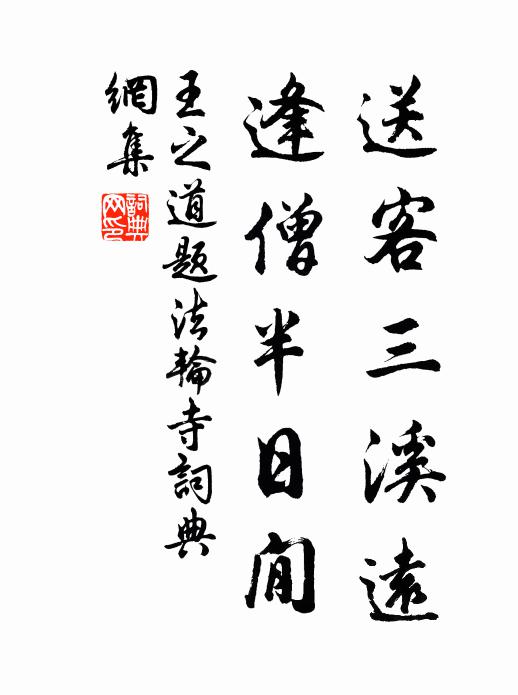 送客三溪遠
逢僧半日閒
王之道題法輪寺詞典
網集
詞典
网印